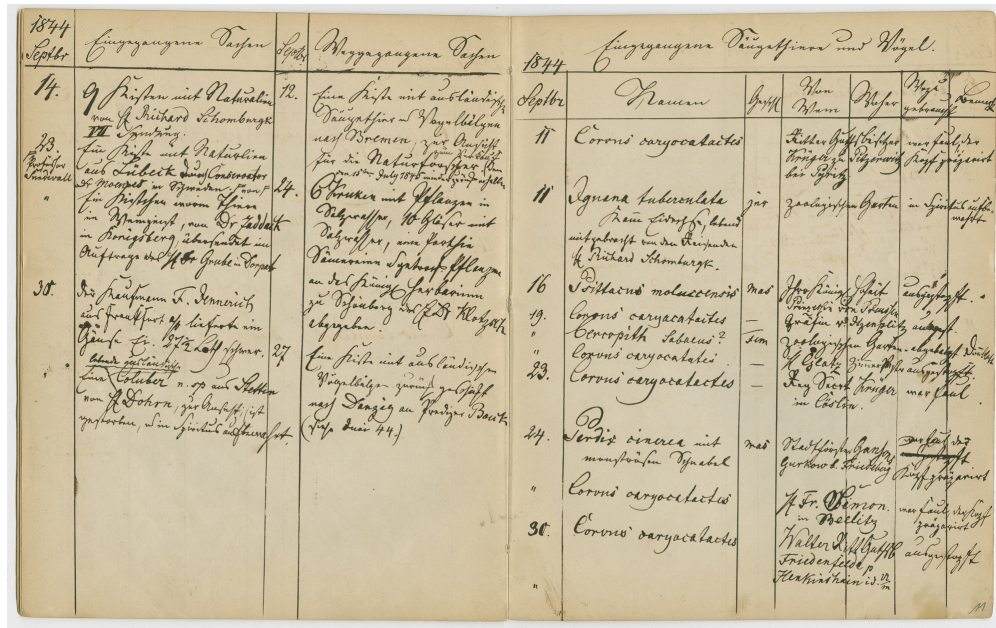 1844
Septbr
Eingegangene Sachen
Septbr
Weggegangene Sachen
14.
9 Kisten mit Naturalien
von H Richard Schomburgk
VII Sendung.
23.
Professor
Ein Kiste mit Naturalien
aus Lübeck durch Conservator
in Schweden.
"
Ein Kistchen worin Thiere
in Weingeist, von Dr Zaddach
in Königsberg, übersendet im
Auftrage des H Dr Grube in Dorpat
30.
Der Kaufmann F. Jennerich
aus Frankfurt a/o lieferte ein
Gänse Ei. 27 1/2 Loth schwer.
"
lebende ausländische
Eine Coluber n. sp aus Stettin
von H Dohrn, zur Ansicht, ist
gestorben, u in Spiritus aufbewahrt.
12.
Eine Kiste mit ausländischen
Säugethier u Vogelbälgen
nach Bremen, zur Ansicht
für die Naturforscher
24.
6 Kruken mit Pflanzen in
Salzwasser, 10 Gläser mit
Salzwasser, eine Parthie
Sämereien u getrock Pflanzen
an das Königl Herbarium
zu Schöneberg des H Dr Klotzsch
abgegeben.
27
Eine Kiste mit ausländischen
Vögelbälgen zurück geschickt
nach Danzig an Prediger Böck
(siehe Juni 44.)
1844
Eingegangene Säugethiere und Vögel.
Septbr
Namen
Geschl
Von Wem
Woher
Wozu gebraucht
Bemerk
11
Corvus caryocatactes
bei Pyritz
war faul, der
Kopf präparirt
11
Iguana tuberculata
Kamm Eidechse, lebend
mitgebracht von dem Reisenden
H Richard Schomburgk.
jun
zoologischen Garten
in Spiritus aufbe-
wahrt
16
Psittacus moluccensis
mas
Ihro Königl Hoheit
Prinzessin von Preussen
ausgestopft.
19.
Corvus caryocatactes
—
Gräfin v Itzenplitz
ausgest.
"
Cercopith Sabaeus?
Fem
zoologischen Garten
"
Corvus caryocatactes
—
ausgestopft.
23.
Corvus caryocatactes
—
Reg Secrt Krüger
in Cöslin.
war faul
24.
Perdix cinerea mit
monströsen Schnabel
mas
Stadtförster
Gurkow b. Friedeberg
Kopf präparirt
"
Corvus caryocatactes
H Fr. Simon.
in Beelitz
war faul, der Kopf
präparirt
30.
Corvus caryocatactes
Walter
Friedenfelde
ausgestopft
"
11